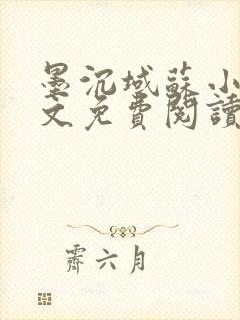 墨沉域蘇小
文免費閱讀
霽六月